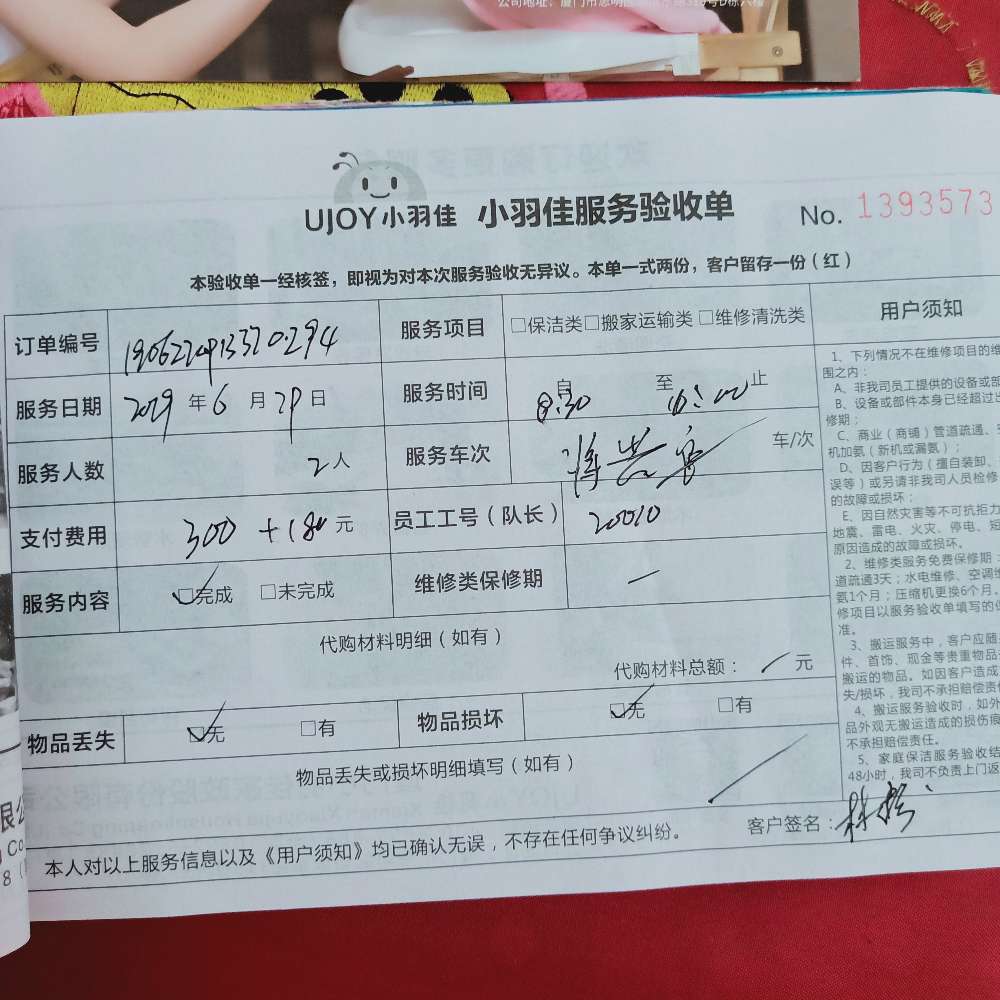 UJOY小羽佳 小羽佳服务验收单 No. 1393573
本验收单一经核签，即视为对本次服务验收无异议。本单一式两份，客户留存一份（红）
订单编号 服务项目 □保洁类□搬家运输类 □维修清洗类
服务日期 年 6 月 日 服务时间 8:30 自 至 止
服务人数 2人 服务车次 车/次
支付费用 300 + 180 元 员工工号（队长） 20010
服务内容 □完成 □未完成 维修类保修期 —
代购材料明细（如有）
代购材料总额： 元
物品丢失 □无 □有 物品损坏 □无 □有
物品丢失或损坏明细填写（如有）
客户签名：
本人对以上服务信息以及《用户须知》均已确认无误，不存在任何争议纠纷。
用户须知
1、下列情况不在维修项目的维
围之内：
A、非我司员工提供的设备或部
B、设备或部件本身已经超过出
修期；
C、商业（商铺）管道疏通、空
机加氨（新机或漏氨）；
D、因客户行为（擅自装卸、
误等）或另请非我司人员检修
的故障或损坏；
E、因自然灾害等不可抗拒力
地震、雷电、火灾、停电、短
原因造成的故障或损坏。
2、维修类服务免费保修期：
道疏通3天；水电维修、空调维
氨1个月；压缩机更换6个月。
修项目以服务验收单填写的保
准。
3、搬运服务中，客户应随身
件、首饰、现金等贵重物品
搬运的物品。如因客户造成
失/损坏，我司不承担赔偿责任
4、搬运服务验收时，如外
品外观无搬运造成的损伤痕
不承担赔偿责任。
5、家庭保洁服务验收结
48小时，我司不负责上门返